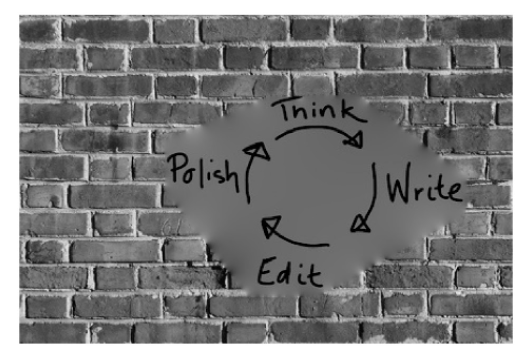 Think
Write
Edit
Polish